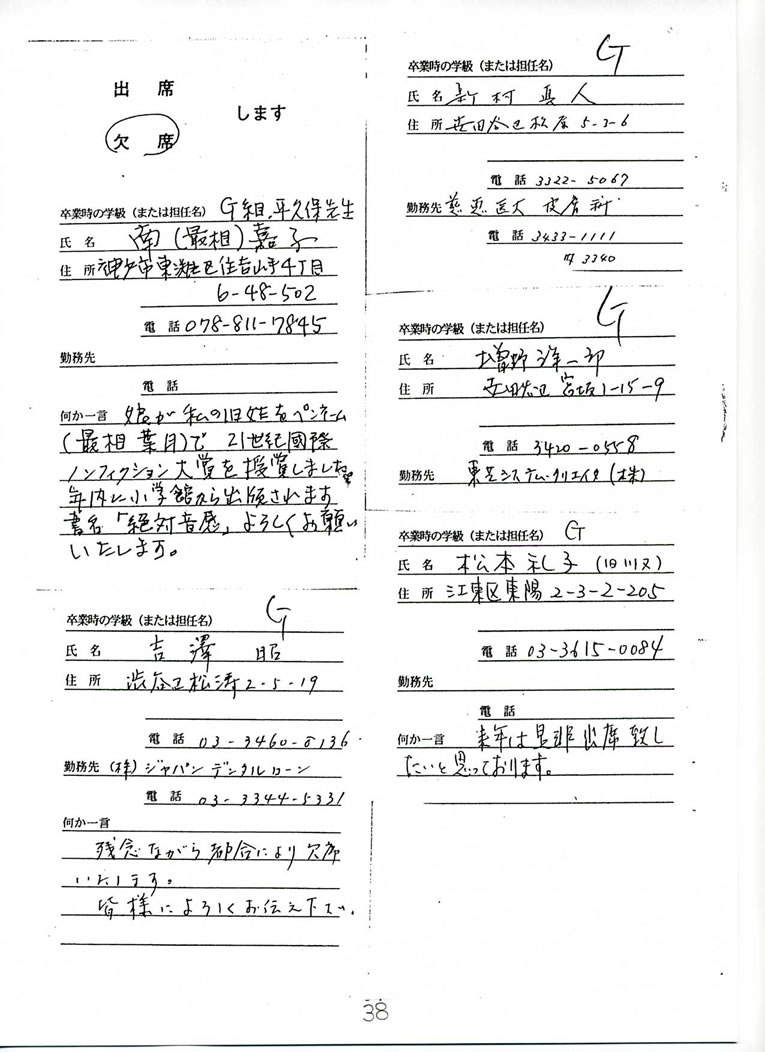 出席
欠席
します
卒業時の学級（または担任名） G組、平久保先生
氏名 南（最相）嘉子
住所 神戸市東灘区住吉山手4丁目
6-48-502
電話 078-811-7845
勤務先
電話
何か一言 娘が私の旧姓をペンネーム
（最相葉月）で 21世紀國際
ノンフィクション大賞を授賞しました
年内に小学館から出版されます
書名「絶対音感」よろしくお願い
いたします。
卒業時の学級（または担任名） G
氏名 吉澤 昭
住所 渋谷区松涛2-5-19
電話 03-3460-8136
勤務先 （株）ジャパンデンタルローン
電話 03-3344-5331
何か一言
残念ながら都合により欠席
いたします。
皆様によろしくお伝え下さい。
卒業時の学級（または担任名） G
氏名 新村真人
住所 世田谷区松原 5-3-6
電話 3322-5067
勤務先 慈恵医大 皮膚科
電話 3433-1111
内 3340
卒業時の学級（または担任名） G
氏名 増野洋一郎
住所 世田谷区宮坂1-15-9
電話 3420-0558
勤務先 東芝システムクリエイタ（株）
卒業時の学級（または担任名） G
氏名 松本礼子（旧川又）
住所 江東区東陽2-3-2-205
電話 03-3615-0084
勤務先
電話
何か一言 来年は是非出席致し
たいと思っております。
38